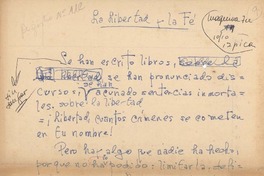 La libertad y la Fe
Se han escrito libros,
libertad se han pronunciado dis-
cursos, y acunado sentencias inmorta-
les, sobre la libertad
¡Libertad, cuantos crímenes se cometen
en tu nombre!
Pero hay algo que nadie ha hecho,
porque no ha podido: limitarla, defi-